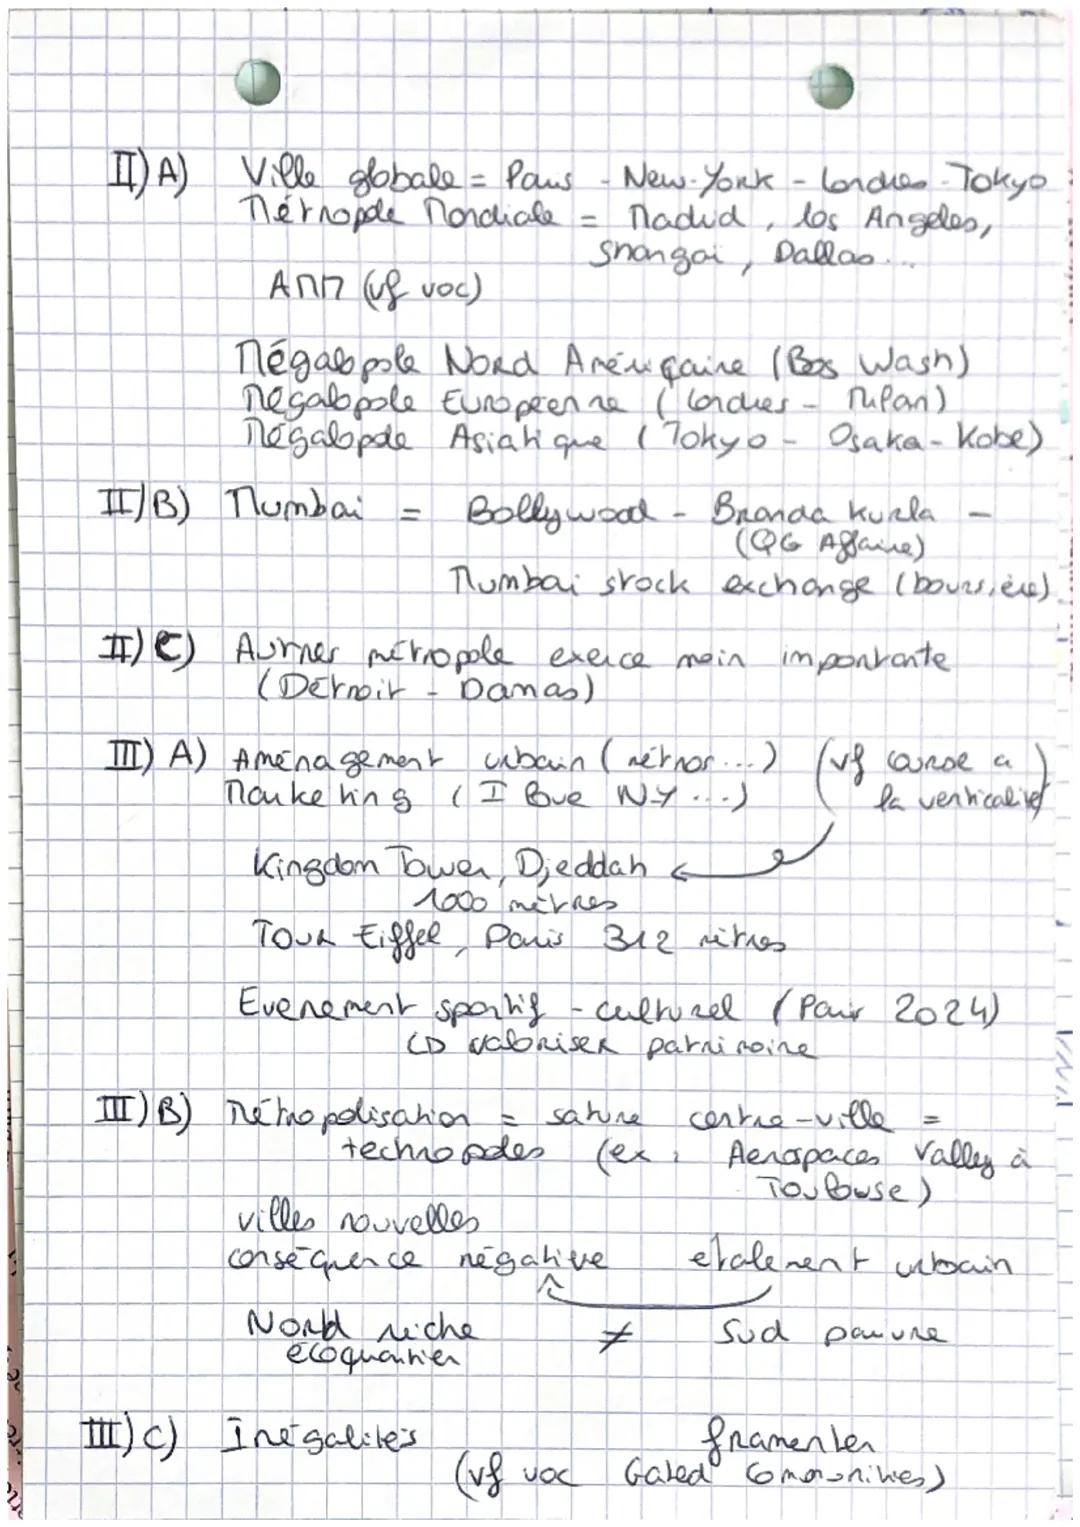 II) A) Ville globale = Paris - New-York - Londres - Tokyo
Métropole Mondiale = Madrid, los Angeles,
Shangai, Dallas...
AMM (vf voc)
Mégalopole Nord Américaine (Bos Wash)
Mégalopole Européenne (Londres - Milan)
Mégalopole Asiatique (Tokyo - Osaka - Kobe)
II) B) Mumbai = Bollywood - Branda Kurla -
(QG Affaire)
Mumbai stock exchange (boursière)
II) C) Autres métropole exerce moin importante
(Détroit - Damas)
III) A) Aménagement urbain (métros...) (vf course a
Marketing (I love N-Y...) la verticalité)
Kingdom Tower, Djeddah
1000 mètres
Tour Eiffel, Paris 312 mètres
Evenement sportif - culturel (Paris 2024)
valoriser patrimoine
III) B) Métropolisation = sature centre-ville =
technopoles (ex : Aerospaces Valley à
Toulouse)
villes nouvelles
conséquence négative etalement urbain
Nord riche ≠ Sud pauvre
écoquartier
III) C) Inégalités framenter
(vf voc Gated Commonities)